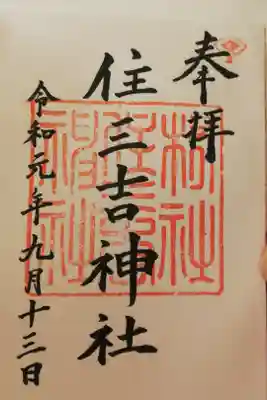 奉拝
住三吉神社
令和元年九月十三日